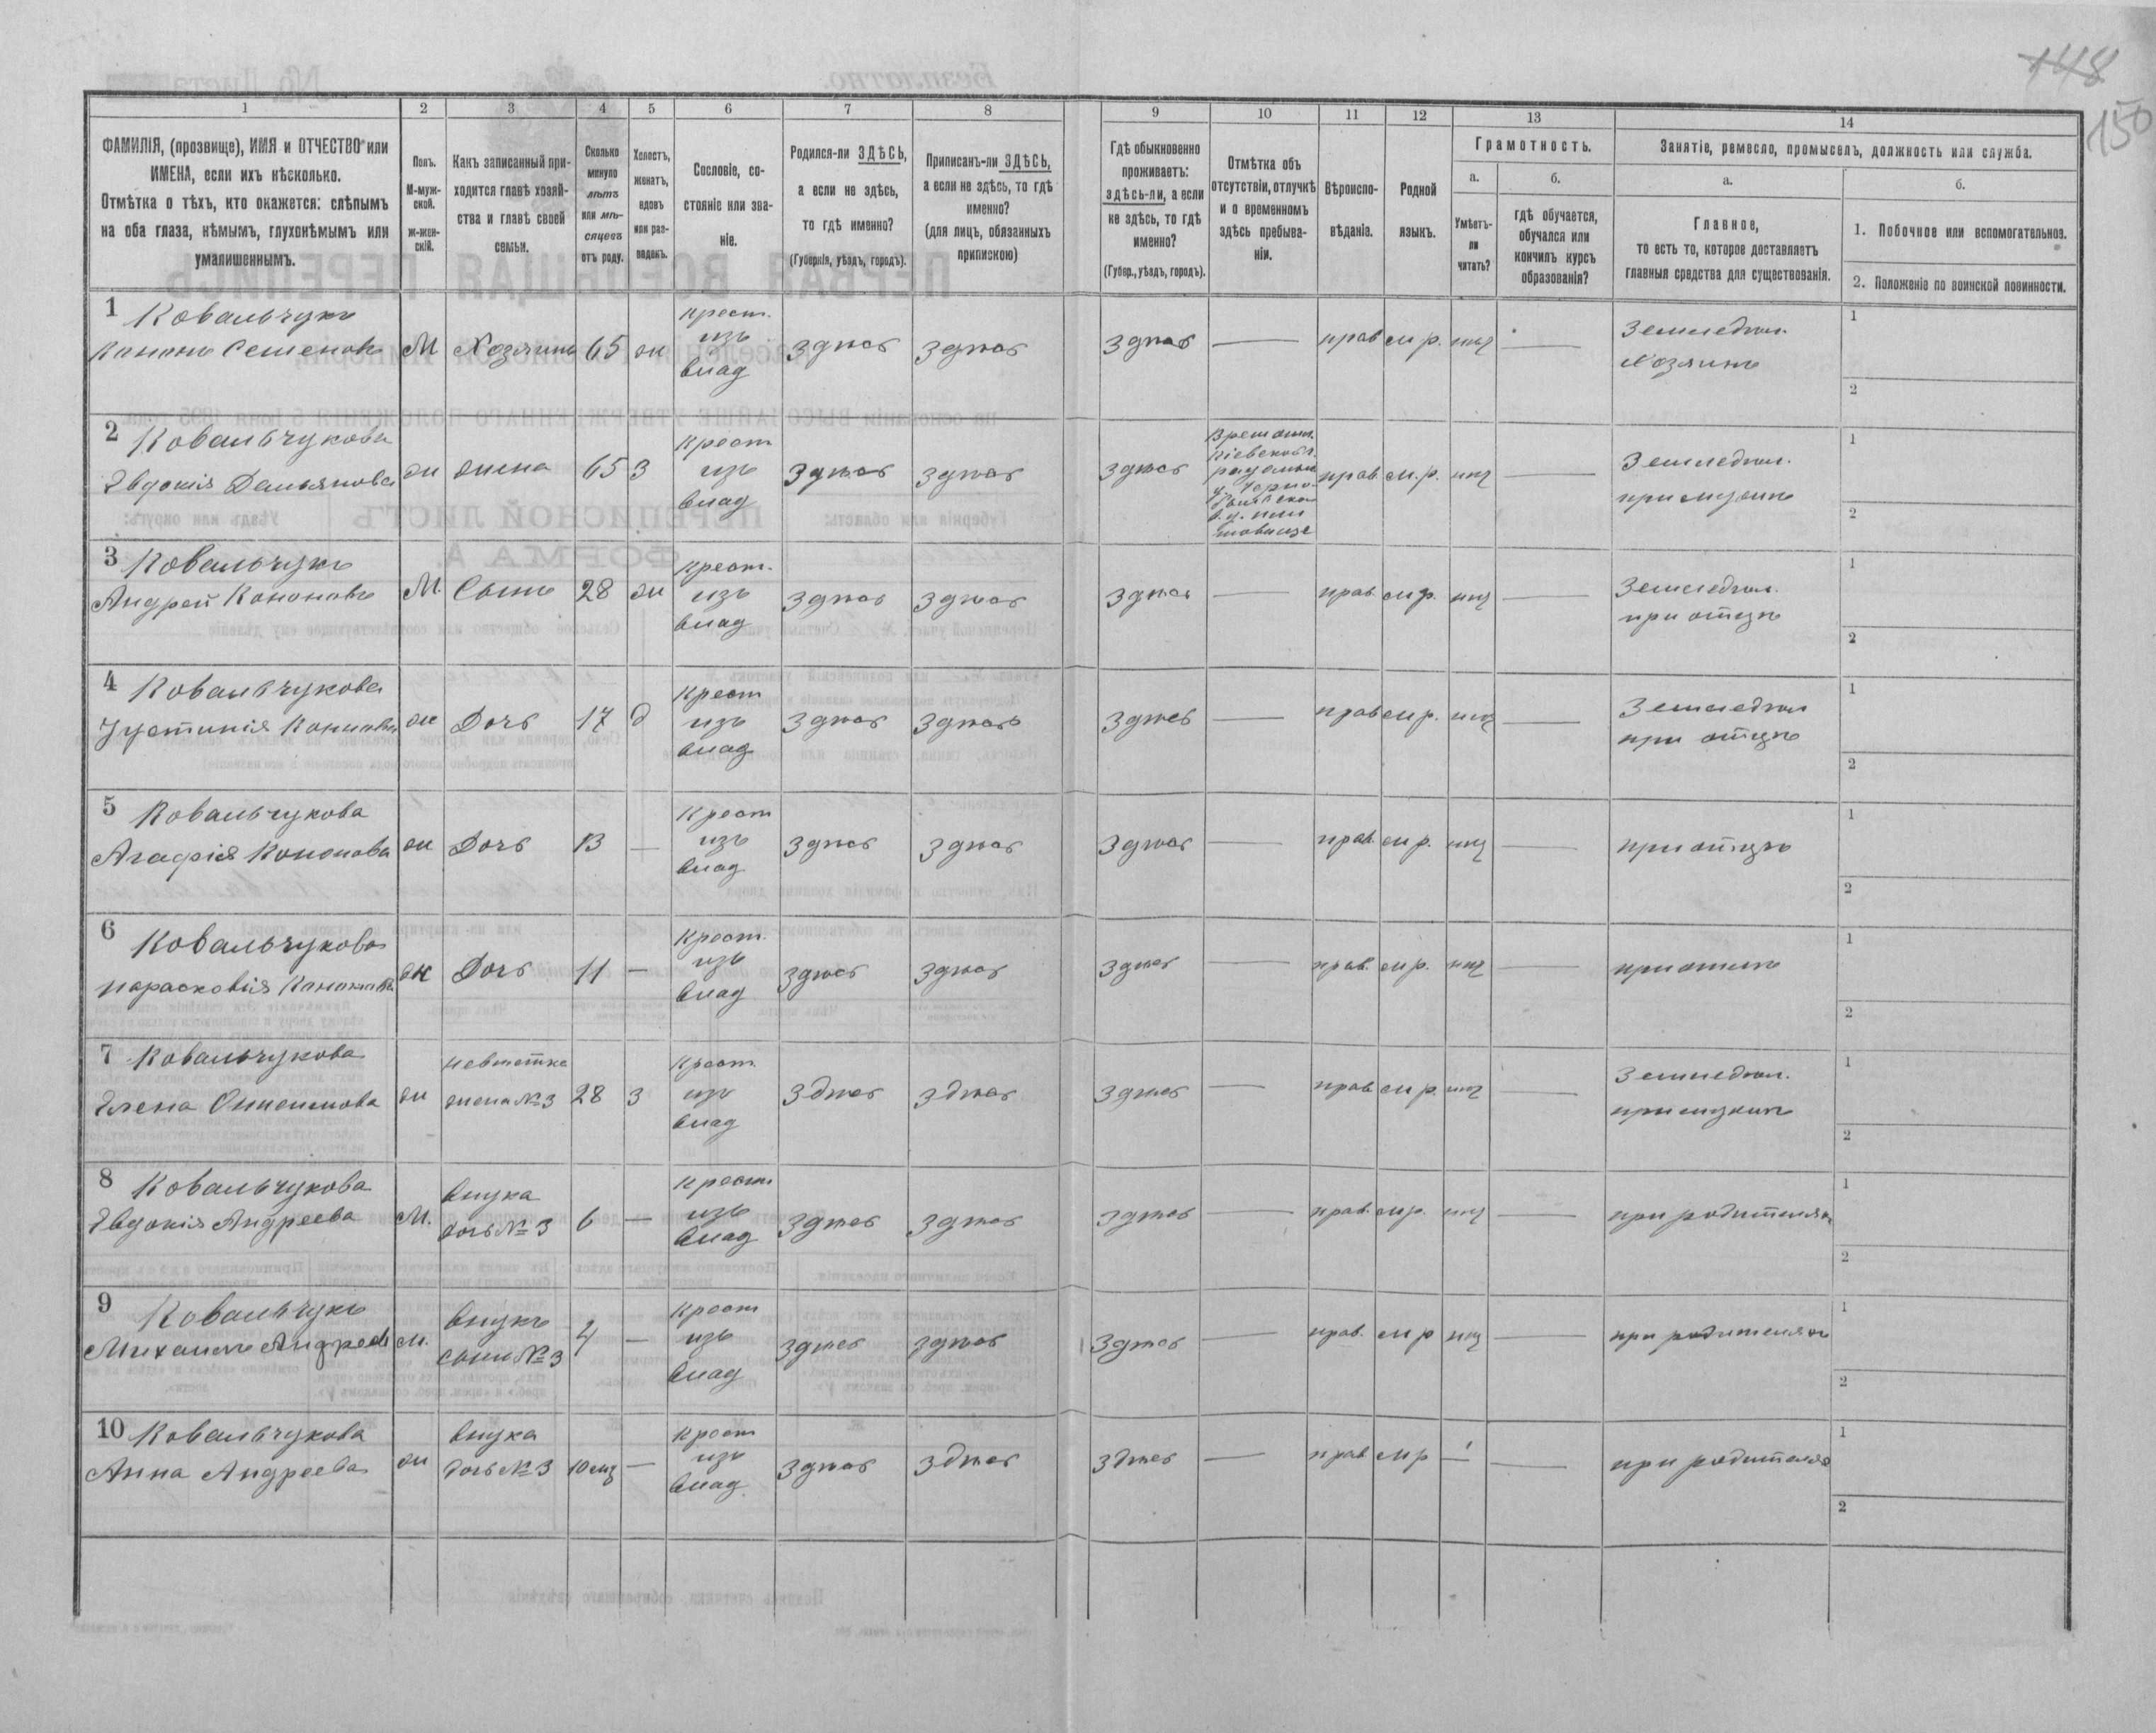 148
150
1
2
3
4
5
6
7
8
9
10
11
12
13
14
ФАМИЛІЯ, (прозвище), ИМЯ и ОТЧЕСТВО или
ИМЕНА, если ихъ нѣсколько.
Отмѣтка о тѣхъ, кто окажется: слѣпымъ
на оба глаза, нѣмымъ, глухонѣмымъ или
умалишеннымъ.
Полъ.
М-муж-
ской.
Ж-жен-
скій.
Какъ записанный при-
ходится главѣ хозяй-
ства и главѣ своей
семьи.
Сколько
минуло
лѣтъ
или мѣ-
сяцевъ
отъ роду.
Холостъ,
женатъ,
вдовъ
или раз-
веденъ.
Сословіе, со-
стояніе или зва-
ніе.
Родился-ли ЗДѢСЬ,
а если не здѣсь,
то гдѣ именно?
(Губернія, уѣздъ, городъ).
Приписанъ-ли ЗДѢСЬ,
а если не здѣсь, то гдѣ
именно?
(для лицъ, обязанныхъ
припискою)
Гдѣ обыкновенно
проживаетъ:
здѣсь-ли, а если
не здѣсь, то гдѣ
именно?
(Губер., уѣздъ, городъ).
Отмѣтка объ
отсутствіи, отлучкѣ
и о временномъ
здѣсь пребыва-
ніи.
Вѣроиспо-
вѣданіе.
Родной
языкъ.
Грамотность.
а.
Умѣетъ-
ли
читать?
б.
гдѣ обучается,
обучался или
кончилъ курсъ
образованія?
Занятіе, ремесло, промыселъ, должность или служба.
а.
Главное,
то есть то, которое доставляетъ
главныя средства для существованія.
б.
1. Побочное или вспомогательное.
2. Положеніе по воинской повинности.
1 Ковальчукъ крест. Земледѣл. 1
Кононъ Семеновъ М Хозяинъ 65 ж изъ здѣсь здѣсь здѣсь — прав м р. нѣт — хозяинъ
влад 2
2 Ковальчукова крест Времен. 1
Евдокія Демьянова ж жена 65 З изъ здѣсь здѣсь здѣсь прав. м. р. нѣт — Земледѣл.
влад при мужѣ 2
3 Ковальчукъ крест. 1
Андрей Кононовъ М. Сынъ 28 ж изъ здѣсь здѣсь здѣсь — прав. м р. нѣт — Земледѣл.
влад при отцѣ 2
4 Ковальчукова крест 1
Іустинія Кононова ж Дочь 17 д изъ здѣсь здѣсь здѣсь — прав м р. нѣт — Земледѣл
влад при отцѣ 2
5 Ковальчукова крест 1
Агафія Кононова ж Дочь 13 — изъ здѣсь здѣсь здѣсь — прав. м р. нѣт — при отцѣ
влад 2
6 Ковальчукова крест. 1
Парасковія Кононова ж Дочь 11 — изъ здѣсь здѣсь здѣсь — прав. м р. нѣт — при отцѣ
влад 2
7 Ковальчукова невѣстка крест. Земледѣл. 1
Елена Онисимова ж жена № 3 28 З изъ здѣсь здѣсь здѣсь — прав. м р. нѣт — при мужѣ
влад 2
8 Ковальчукова внука крест 1
Евдокія Андреева М. дочь № 3 6 — изъ здѣсь здѣсь здѣсь — прав. м р. нѣт — при родителях
влад 2
9 Ковальчукъ внукъ крест 1
Михаилъ Андреев М. сынъ № 3 4 — изъ здѣсь здѣсь здѣсь — прав. м р нѣт — при родителях
влад 2
10 Ковальчукова внука крест 1
Анна Андреева ж дочь № 3 10 мц — изъ здѣсь здѣсь здѣсь — прав м р — — при родителях
влад 2